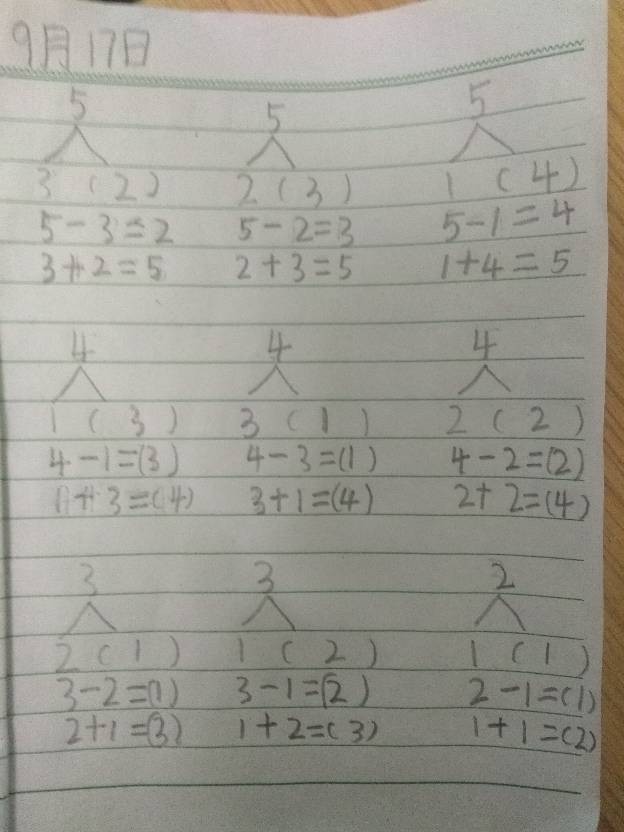 9月17日
5 5 5
3 (2) 2 (3) 1 (4)
5-3=2 5-2=3 5-1=4
3+2=5 2+3=5 1+4=5
4 4 4
1 (3) 3 (1) 2 (2)
4-1=(3) 4-3=(1) 4-2=(2)
1+3=(4) 3+1=(4) 2+2=(4)
3 3 2
2 (1) 1 (2) 1 (1)
3-2=(1) 3-1=(2) 2-1=(1)
2+1=(3) 1+2=(3) 1+1=(2)